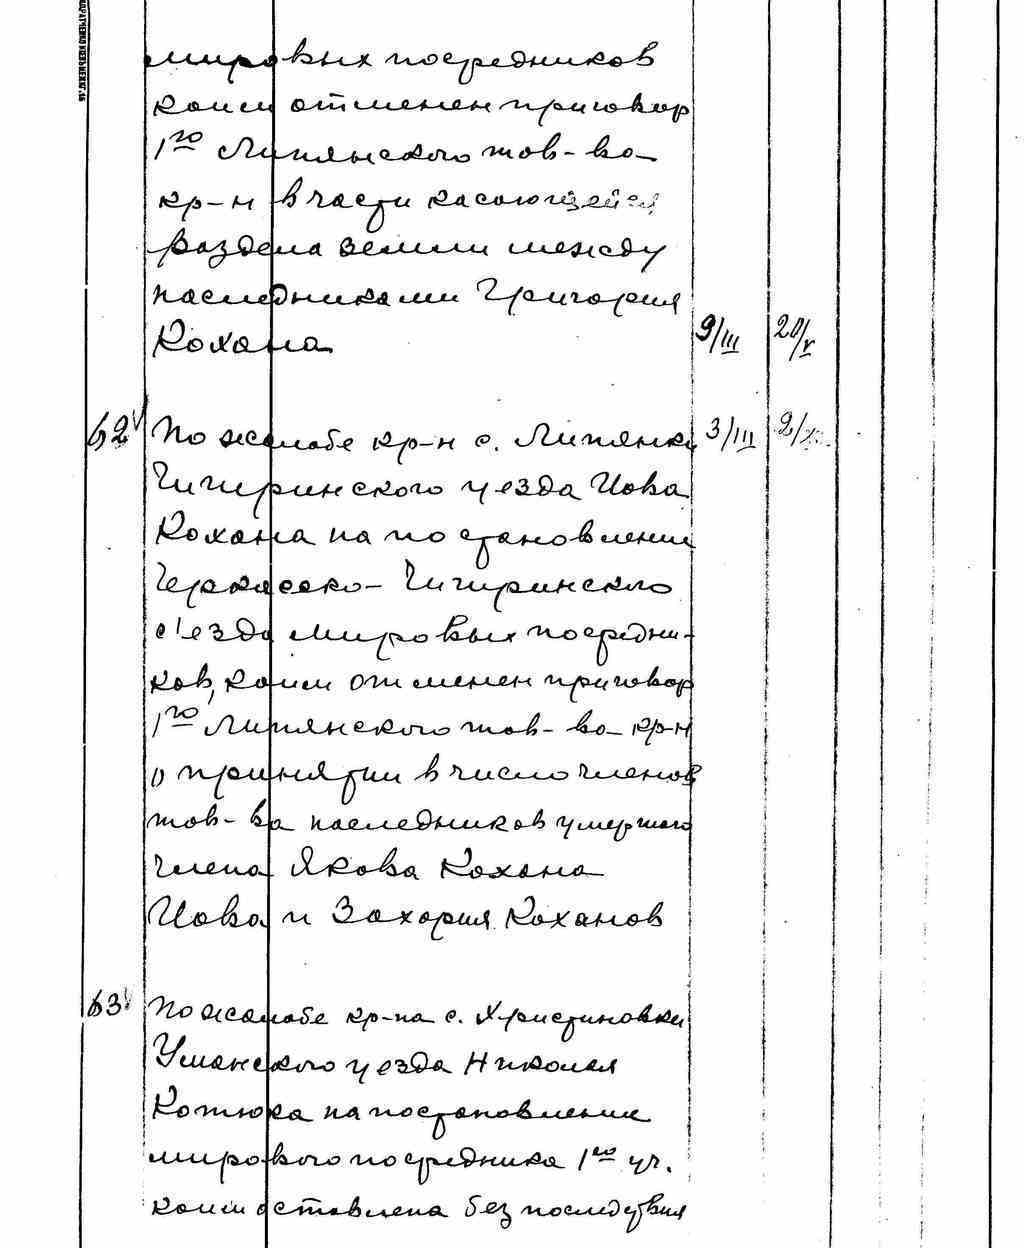 мировых посредников
коим отменен приговор
1го Липянского тов-ва
кр-н в части касающейся
раздела земли между
наследниками Григория
Кохана 9/III 20/V
62 По жалобе кр-н с. Липянки 3/III
Чигиринского уезда Иова
Кохана на постановление
Черкасско-Чигиринского
с'езда мировых посредни-
ков, коим отменен приговор
1го Липянского тов-ва кр-н
о принятии в число членов
тов-ва наследников умершего
члена Якова Кохана
Иова и Захария Коханов
63 По жалобе кр-на с. Христиновки
Уманского уезда Николая
Котюка на постановление
мирового посредника 1го уч.
коим оставлена без последствия